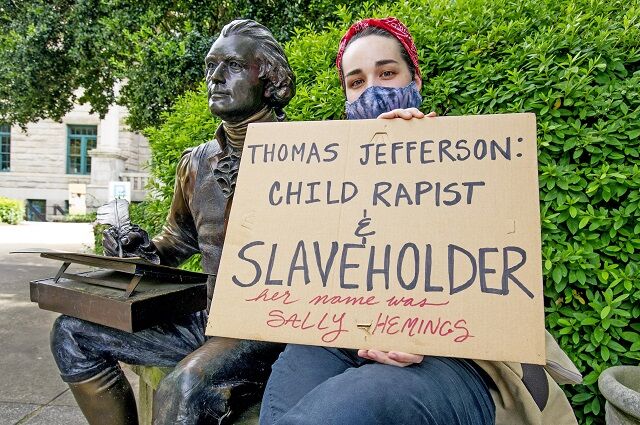 THOMAS JEFFERSON:
CHILD RAPIST
&
SLAVEHOLDER
her name was
SALLY HEMINGS